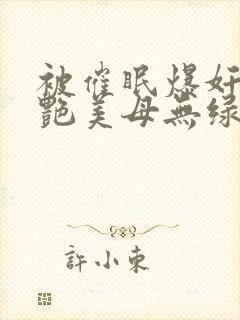 被催眠爆奸
艷美母無绿
許小东